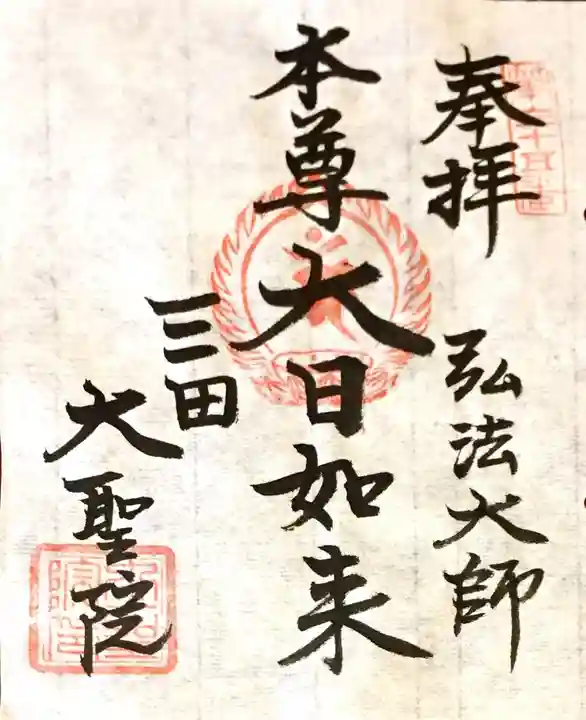 奉拝
弘法大師
本尊 大日如来
三田
大聖院